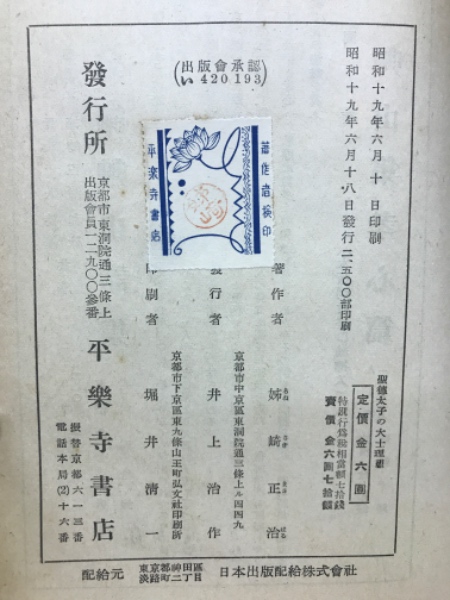 昭和十九年六月十日印刷
昭和十九年六月十八日發行 二、五〇〇部印刷
聖德太子の大士理想
定價金六圓
特別行爲税相當額七拾錢
賣價金六圓七拾錢
(出版會承認
い420193)
著作者檢印
平樂寺書店
著作者 姉崎正治
あね ざき まさ はる
京都市中京區東洞院通三條上ル四四九
發行者 井上治作
京都市下京區東九條山王町弘文社印刷所
印刷者 堀井清一
發行所
京都市東洞院通三條上
出版會員一二九〇〇參番
平樂寺書店
振替京都六一三番
電話本局(2)十六番
配給元 東京都神田區淡路町二丁目 日本出版配給株式會社